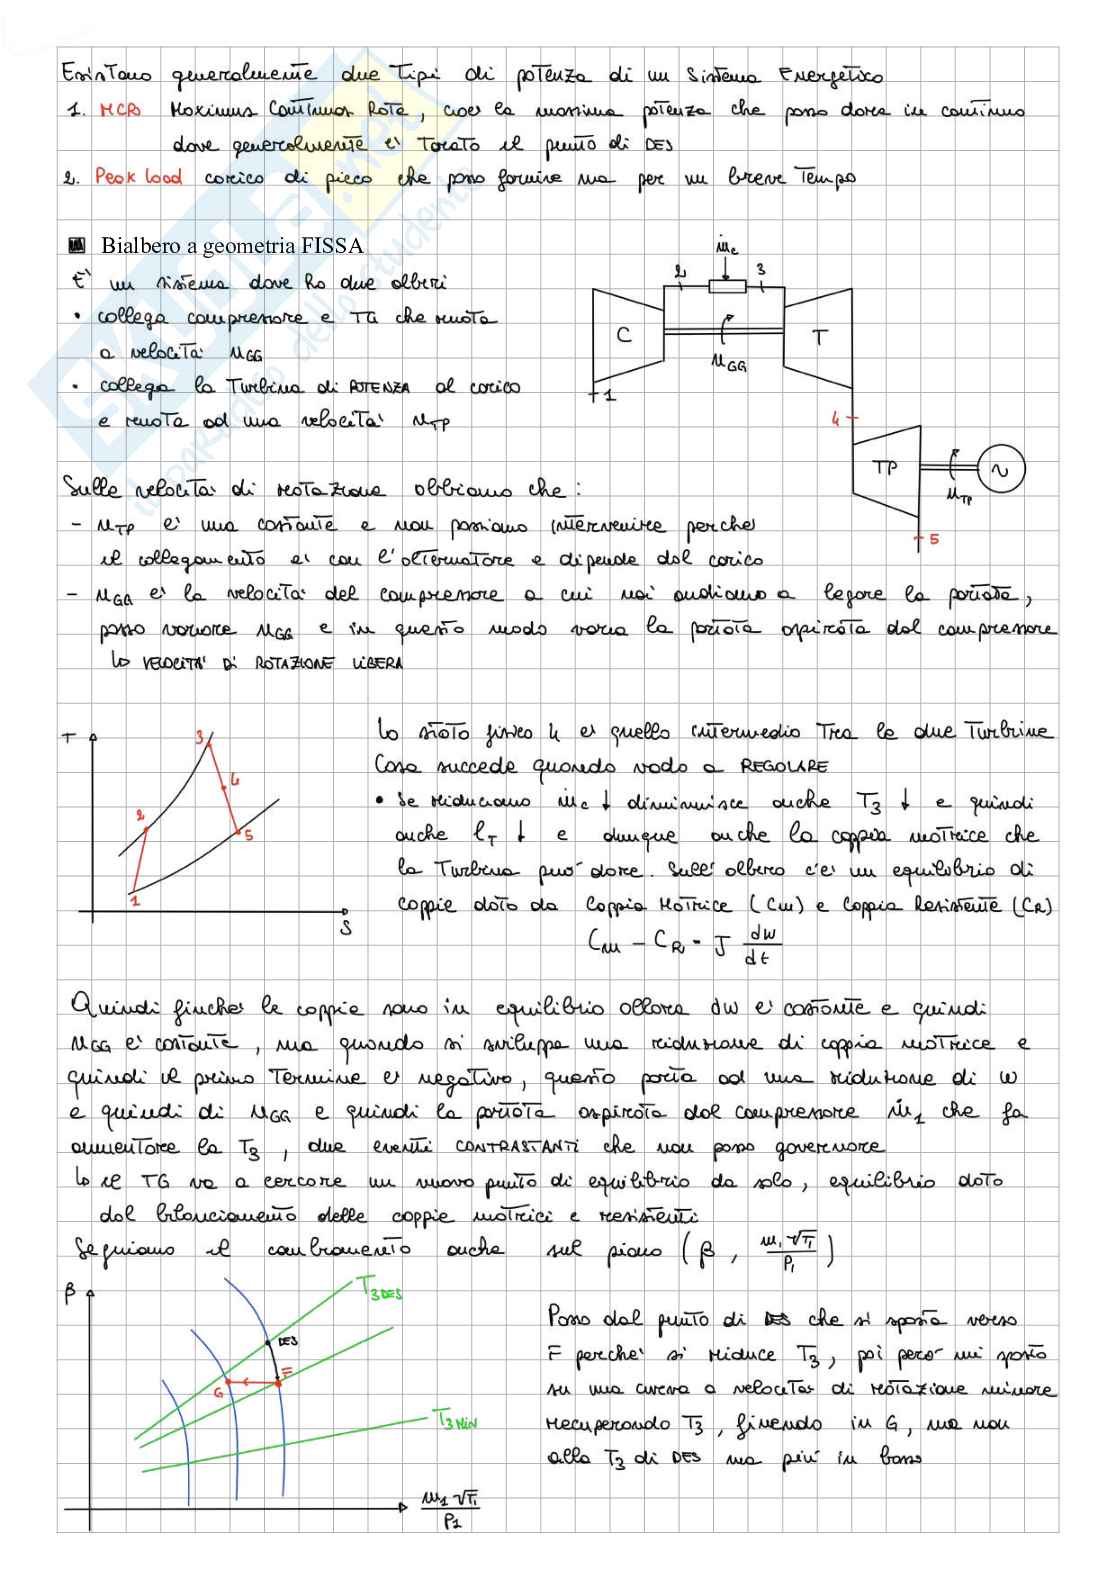 Esistono generalmente due tipi di potenza di un Sistema Energetico
1. MCR Maximus Continuos Rate, cioè la massima potenza che posso dare in continuo
dove generalmente è tarato il punto di DES
2. Peak load carico di picco che posso fornire ma per un breve tempo
Bialbero a geometria FISSA
È un sistema dove ho due alberi
• collega compressore e TG che ruota
a velocità nGG
• collega la Turbina di POTENZA al carico
e ruota ad una velocità nTP
ṁc
2 3
C T
nGG
1
4
TP ~
nTP
5
Sulle velocità di rotazione abbiamo che:
- nTP è una costante e non possiamo intervenire perché
il collegamento è con l'alternatore e dipende dal carico
- nGG è la velocità del compressore a cui noi andiamo a legare la portata,
posso variare nGG e in questo modo varia la portata aspirata dal compressore
↳ VELOCITA' DI ROTAZIONE LIBERA
T
3
4
2
5
1
S
Lo stato fisico 4 è quello intermedio tra le due Turbine
Cosa succede quando vado a REGOLARE
• Se riduciamo ṁc ↓ diminuisce anche T3 ↓ e quindi
anche lT ↓ e dunque anche la coppia motrice che
la Turbina può dare. Sull'albero c'è un equilibrio di
coppie dato da Coppia Motrice (CM) e Coppia Resistente (CR)
CM - CR = J dw/dt
Quindi finché le coppie sono in equilibrio allora dw è costante e quindi
nGG è costante, ma quando si sviluppa una riduzione di coppia motrice e
quindi il primo Termine è negativo, questo porta ad una riduzione di w
e quindi di nGG e quindi la portata aspirata dal compressore ṁ1 che fa
aumentare la T3, due eventi CONTRASTANTI che non posso governare
↳ il TG va a cercare un nuovo punto di equilibrio da solo, equilibrio dato
dal bilanciamento delle coppie motrici e resistenti
Seguiamo il cambiamento anche sul piano (β, m1√T1/P1)
β
T3DES
DES
F
G
T3MIN
m1√T1/P1
Passo dal punto di DES che si sposta verso
F perché si riduce T3, poi però mi sposto
su una curva a velocità di rotazione minore
recuperando T3, finendo in G, ma non
alla T3 di DES ma più in basso